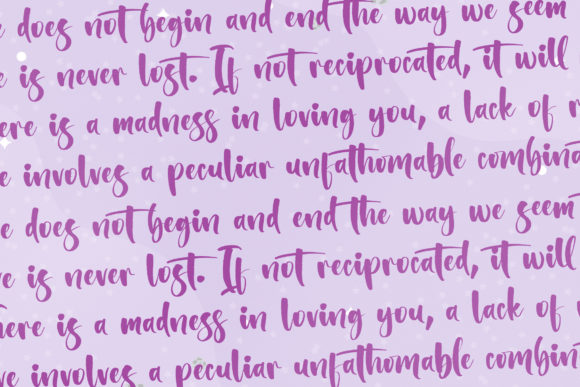 e does not begin and end the way we seem
e is never lost. If not reciprocated, it will
ere is a madness in loving you, a lack of r
e involves a peculiar unfathomable combina
e does not begin and end the way we seem
ve is never lost. If not reciprocated, it will
here is a madness in loving you, a lack of
ve involves a peculiar unfathomable combin